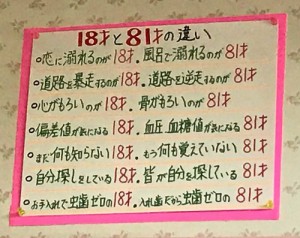 18才と81才の違い
○恋に溺れるのが18才。風呂で溺れるのが81才
○道路を暴走するのが18才。道路を逆走するのが81才
○心がもろいのが18才。骨がもろいのが81才
○偏差値が気になる18才。血圧、血糖値が気になる81才
○まだ何も知らない18才。もう何も覚えていない81才
○自分探しをしている18才。皆が自分を探している81才
○お手入れで虫歯ゼロの18才。入れ歯だから虫歯ゼロの81才